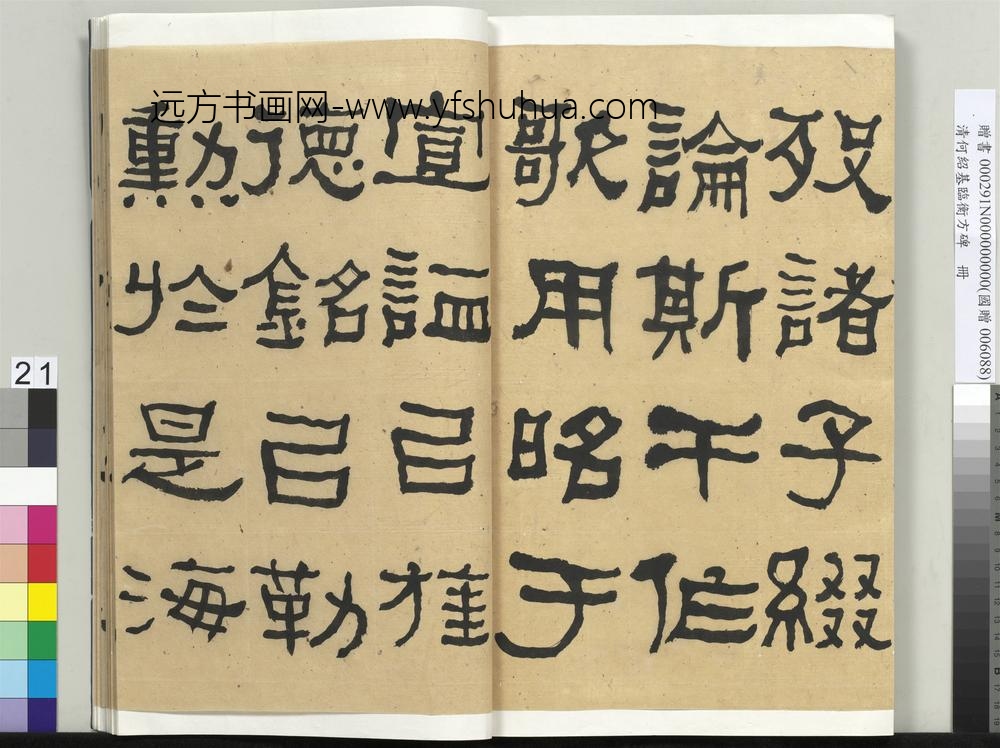 远方书画网-www.yfshuhua.com
歿諸子綴
論斯干作
歌用昭于
宣謚㠯旌
德銘㠯勒
勳於是海
贈書 000291N000000000(國贈 006088)
清何绍基臨衡方碑 冊
21